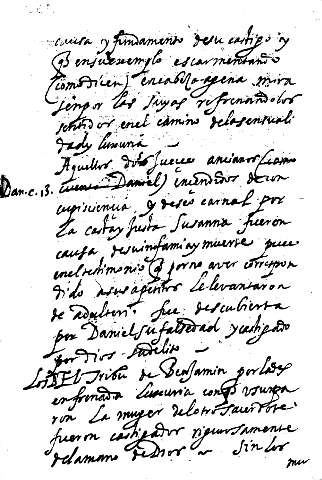 causa y fundamento de su castigo y
q en su exemplo escarmentando
(como dicen) en cabeza agena mira
sen por las suyas refrenando los
sentidos en el camino de la sensuali
dad y luxuria
Aquellos dos Jueces ancianos (como
Dan. c. 13. cuenta Daniel) encendidos de con
cupiscencia y deseo carnal por
la casta y justa Susanna fueron
causa de su infamia y muerte pues
en el testimonio q por no aver correspon
dido a sus apetitos le levantaron
de adulterio fue descubierta
por Daniel su falsedad y castigado
por Dios su delito
Los del Tribu de Benjamin por la des
enfrenada luxuria con q usurpa
ron la muger del otro sacerdote
fueron castigados rigurosamente
de la mano de Dios sin los
mu